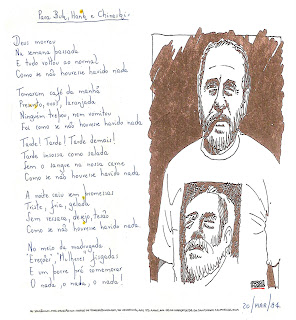 Para Buk, Hank e Chinaski.
Deus morreu
Na semana passada
E tudo voltou ao normal
Como se não houvesse havido nada
Tomaram café da manhã
Presunto, ovos, laranjada
Ninguém tremeu, nem vomitou
Foi como se não houvesse havido nada
Tarde! Tarde! Tarde demais!
Tarde insossa como salada
Sem o sangue na nossa carne
Como se não houvesse havido nada
A noite caiu sem promessas
Triste, fria, gelada
Sem ressaca, desejo, tesão
Como se não houvesse havido nada
No meio da madrugada
Ereções, Mulheres fisgadas
E um porre pra comemorar
O nada, o nada, o nada!
20/MAR/94